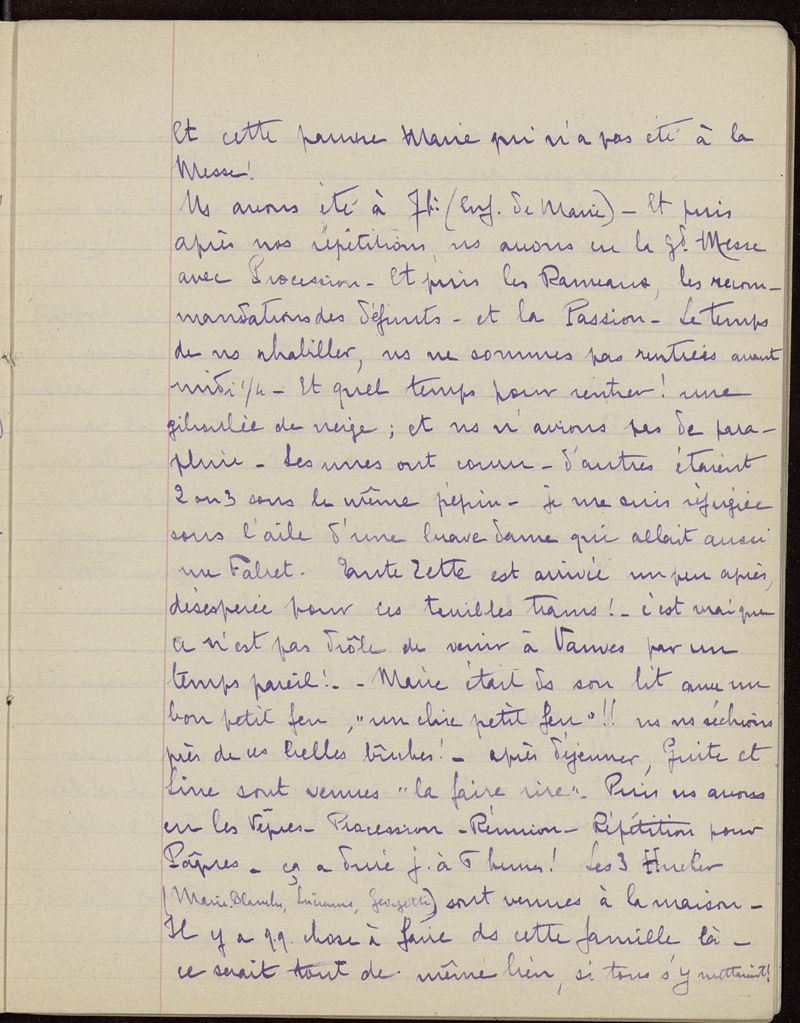 Et cette pauvre Marie qui n'a pas été à la
Messe!
Ns avons été à 7h: (Enf. de Marie) – Et puis
après nos répétitions, ns avons eu la gd. Messe
avec Procession – Et puis les Rameaux, les recom-
mandations des défunts – et la Passion – Le temps
de ns rhabiller, ns ne sommes pas rentrées avant
midi 1/4 – Et quel temps pour rentrer! une
giboulée de neige; et ns n'avions pas de para-
pluie – Les unes ont couru – d'autres étaient
2 ou 3 sous le même pépin – je me suis réfugiée
sous l'aile d'une brave dame qui allait aussi
rue Falret. Tante Zette est arrivée un peu après,
désespérée pour ces terribles trams! – c'est vrai que
ce n'est pas drôle de venir à Vanves par un
temps pareil! – – Marie était ds son lit avec un
bon petit feu, "un chic petit feu"!! ns ns séchions
près de ces belles bûches! – après déjeuner, Guite et
Line sont venues "la faire rire". Puis ns avons
eu les Vêpres – Procession – Réunion – Répétition pour
Pâques – ça a duré j. à 6 heures! Les 3
(Marie Blanche, Lucienne, Georgette) sont venues à la maison –
Il y a qq. chose à faire ds cette famille là –
ce serait tout de même bien, si tous s'y mettaient!